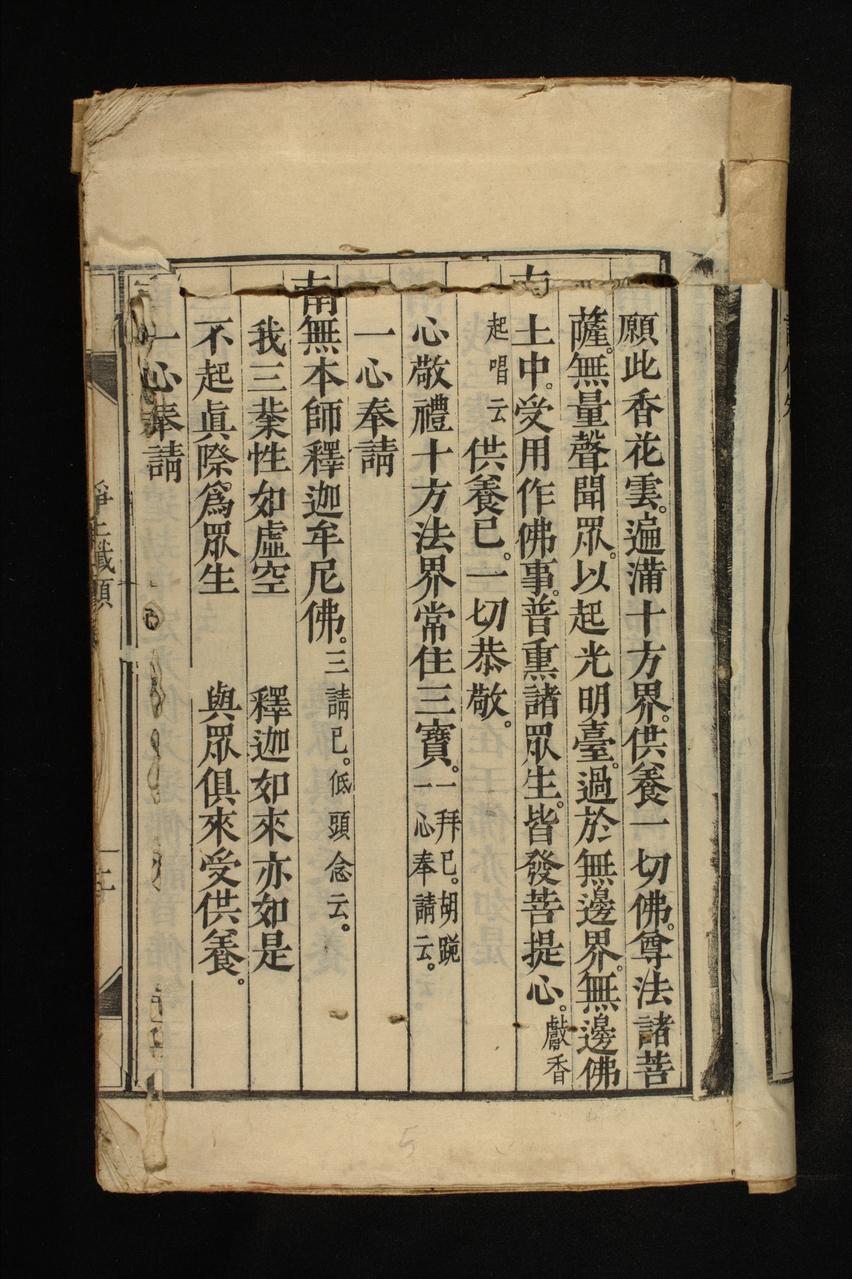 願此香花雲。遍滿十方界。供養一切佛。尊法諸菩
薩。無量聲聞眾。以起光明臺。過於無邊界。無邊佛
土中。受用作佛事。普熏諸眾生。皆發菩提心。獻香
起唱云供養已。一切恭敬。
心敬禮十方法界常住三寶。一拜已。胡跪
一心奉請云。
一心奉請
南無本師釋迦牟尼佛。三請已。低頭念云。
我三業性如虛空 釋迦如來亦如是
不起眞際爲眾生 與眾俱來受供養。
一心奉請
淨土懺願